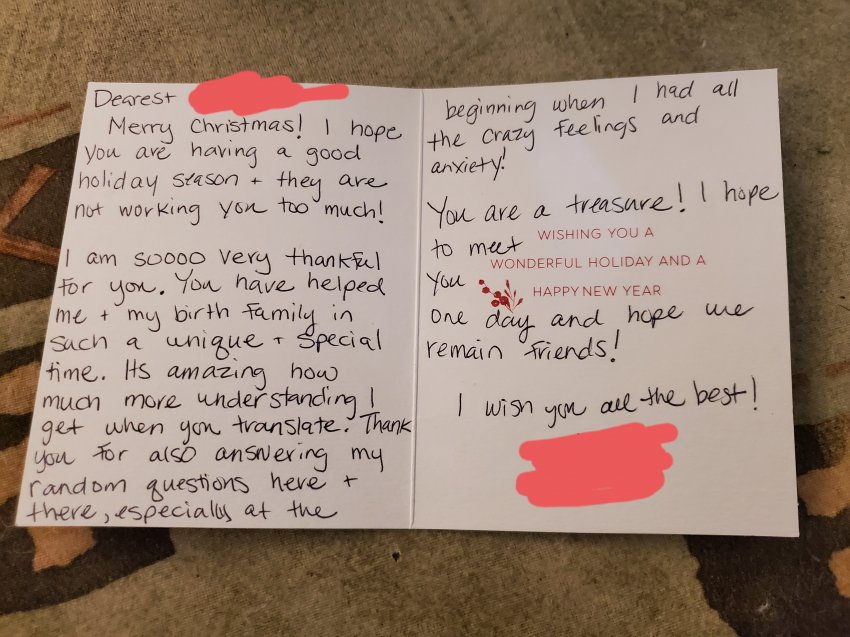 Dearest
Merry Christmas! I hope
you are having a good
holiday season + they are
not working you too much!
I am soooo very thankful
for you. You have helped
me + my birth family in
such a unique + special
time. Its amazing how
much more understanding I
get when you translate. Thank
you for also answering my
random questions here +
there, especially at the
beginning when I had all
the crazy feelings and
anxiety!
You are a treasure! I hope
to meet
WISHING YOU A
WONDERFUL HOLIDAY AND A
you
HAPPY NEW YEAR
one day and hope we
remain friends!
I wish you all the best!